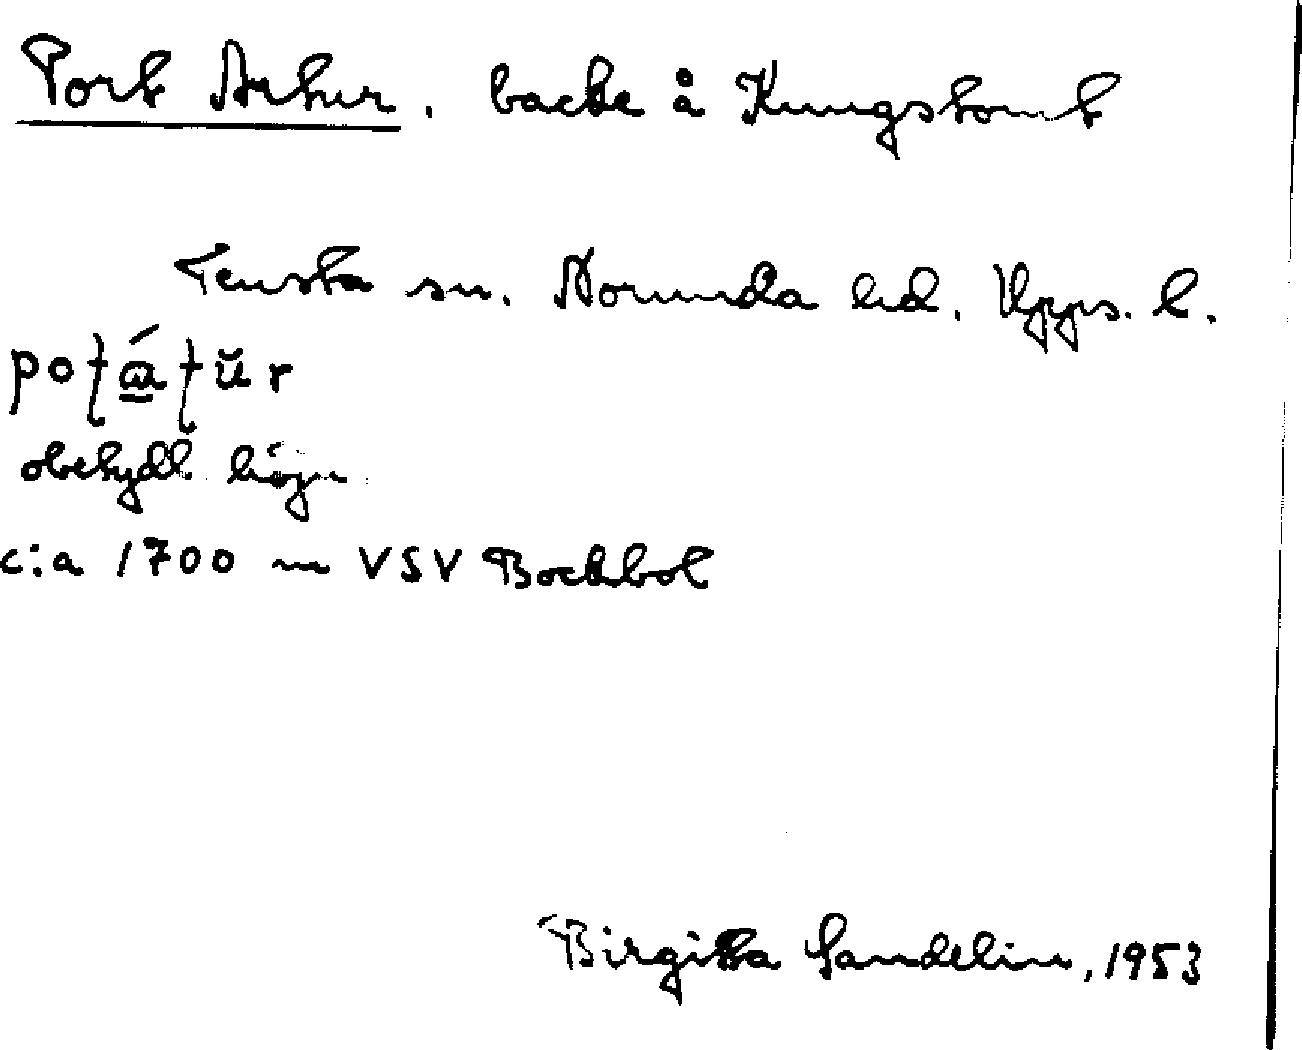 Port Artur, backe å Kungstomt
Tensta sn. Norunda hd. Upps. l.
obetydl. höjn
c:a 1700 m VSV Bockbol
Birgitta Sandelin, 1953